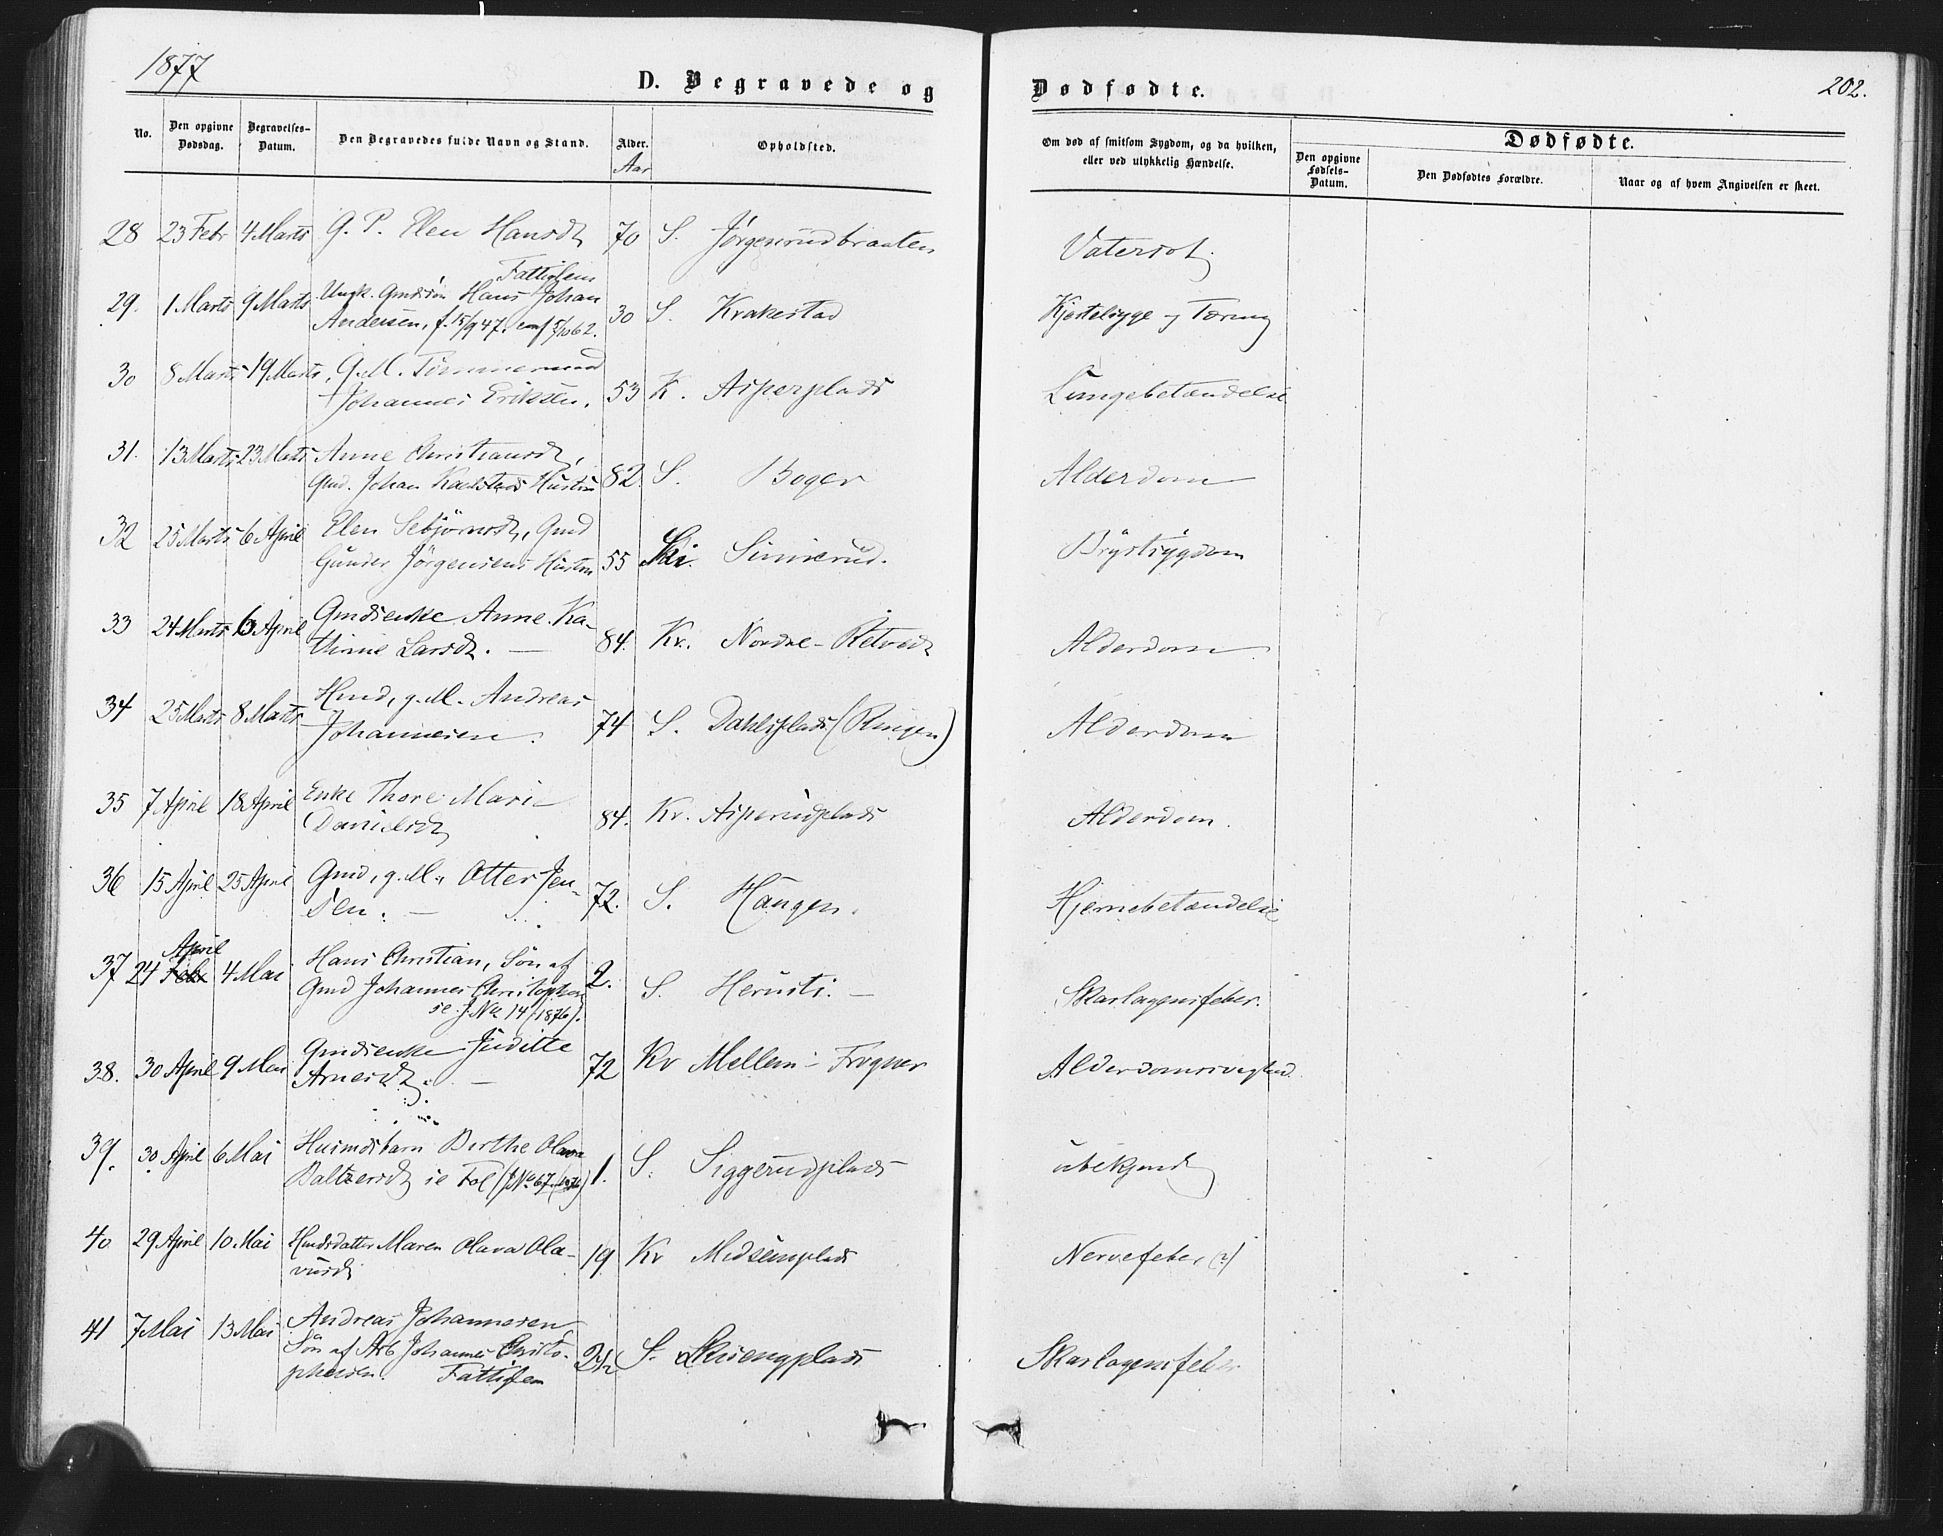 1877
D. Begravede og Dødfødte. 202.
No. Den opgivne Dødsdag. Begravelses-Datum. Den Begravedes fulde Navn og Stand. Alder. Aar Opholdsted. Om død af smitsom Sygdom, og da hvilken, eller ved ulykkelig Hændelse. Dødfødte.
Den opgivne Fødsels-Datum. Den Dødfødtes Forældre. Naar og af hvem Angivelsen er skeet.
28 23 Febr 4 Marts G. P. Elen Hansd. 70 S. Jørgensrudbraaten Vatersot.
Fattiglem
29. 1 Marts 9 Marts Ungk. Gmdssøn Hans Johan
Andersen, f. 15/9 47. conf 5/10 62. 30 S. Krakestad Kjertelsyge og Tæring
30 8 Marts 19 Marts G. M. Tømmermand
Johannes Eriksen. 53 K. Asperplads Lungebetændelse
31. 13 Marts 23 Marts Anne Christiansd,
Gmd. Johan Hustru 82 S. Boger Alderdom
32 25 Marts 6 April Elen Sebjørnsd, Gmd
Gunder Jørgensens Hustru 55 Ski. Simerud. Brystsygdom
33 24 Marts 6 April Gmdsenke Anne Ka-
thrine Larsd. — 84. Kr. Nordre-Retvedt Alderdom
34 25 Marts 8 Marts Hmd, g. M. Andreas
Johannesen. 74 S. Dahlsplads (Ringen) Alderdom
35 7 April 18 April Enke Thore Marie
Danielsd 84. Kr. Asperudplads Alderdom.
36 15 April 25 April Gmd, g. M., Otter Jen-
sen. — 72. S. Haugen. Hjernebetændelse
April
37 24 Febr 4 Mai Hans Christian, Søn af
Gmd Johannes Christophers 2. S. Herusti. — Skarlagensfeber.
se J. No 14 (1876).
38. 30 April 9 Mai Gmdsenke Juditte
Arnesd. — 72 Kr Mellem-Frogner Alderdomssvaghed
39. 30 April 6 Mai Husmdsbarn Berthe Olava
Baltzersd se Fol (J No 67 (1876) 1. S. Siggerudplads ubekjendt
40 29 April 10 Mai Hmdsdatter Maren Olava Ola-
vusd 19 Kr Midsemplads Nervefeber (?)
41 7 Mai 13 Mai Andreas Johannesen,
Søn af Arb Johannes Christo-
phersen. Fattiglem 2 1/2 S. Skuengplads Skarlagensfeber